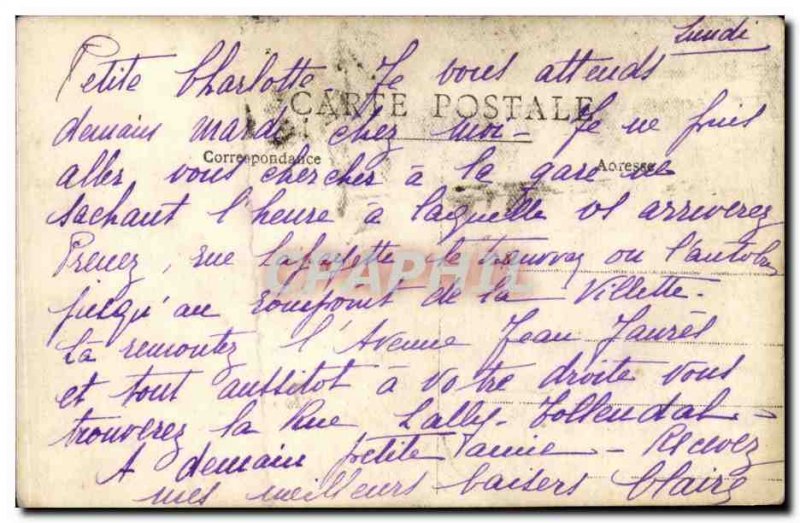 Lundi
Petite Charlotte Je vous attends
CARTE POSTALE
demain mardi chez moi - Je ne puis
Correspondance Adresse
aller vous chercher à la gare ne
sachant l'heure à laquelle vs arriverez
Prenez, rue Lafayette le tramway ou l'autobus
CPAPHIL
jusqu'au rompoint de la Villette -
Là remontez l'Avenue Jean Jaurès
et tout aussitot à votre droite vous
trouverez la Rue Lally-Tollendal -
A demain petite amie - Recevez
mes meilleurs baisers Claire